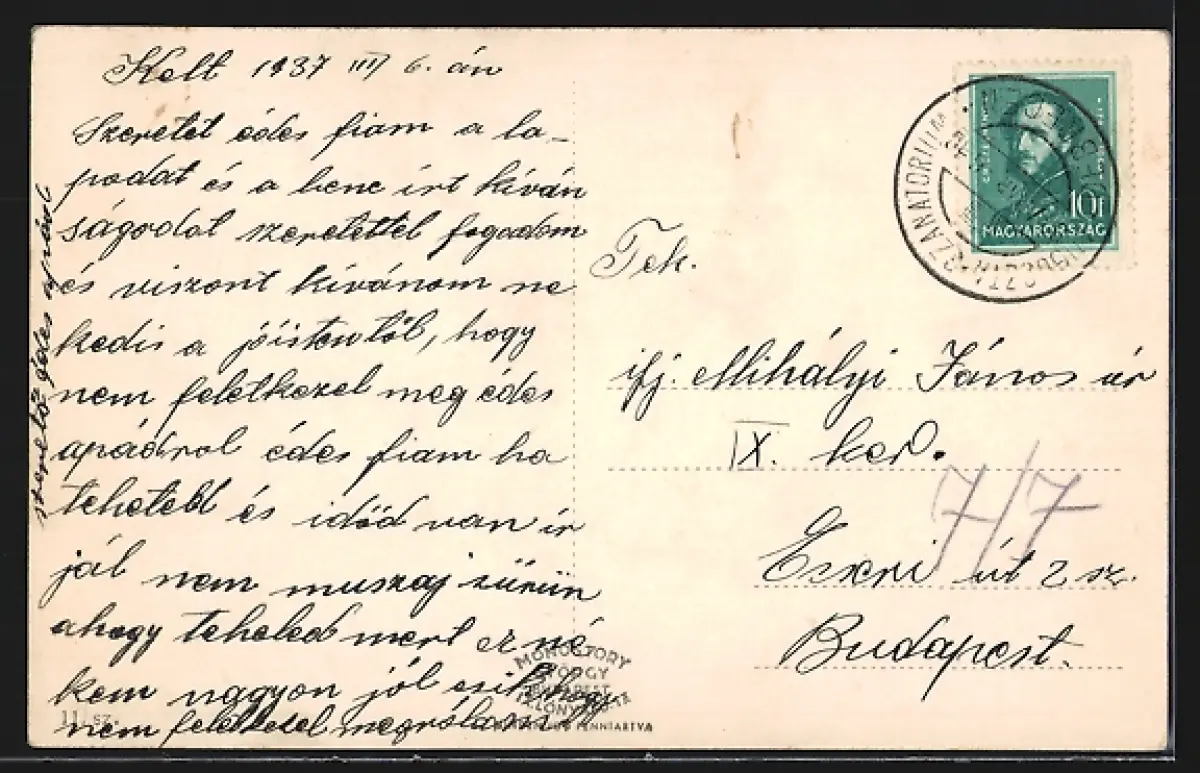 Kelt 1937 III 6. án
Szeretet édes fiam a la-
podat és a bene írt kíván
ságodat szeretettel fogadom
és viszont kívánom ne
kedis a jóistentől, hogy
nem feletkezel meg édes
apádrol édes fiam ha
teheted és időd van ír
jál nem muszaj sürün
ahogy teheted mert ez né
kem nagyon jól esik hogy
nem feletkezel megrólam
szerető édes apád
11. sz.
MAGYARORSZÁG
10f
SZANATORIUM
Tek.
ifj. Mihályi János úr
IX. ker.
7/7
Ecseri út 2 sz.
Budapest.
MONOSTORY
GYÖRGY
BUDAPEST
FENNTARTVA